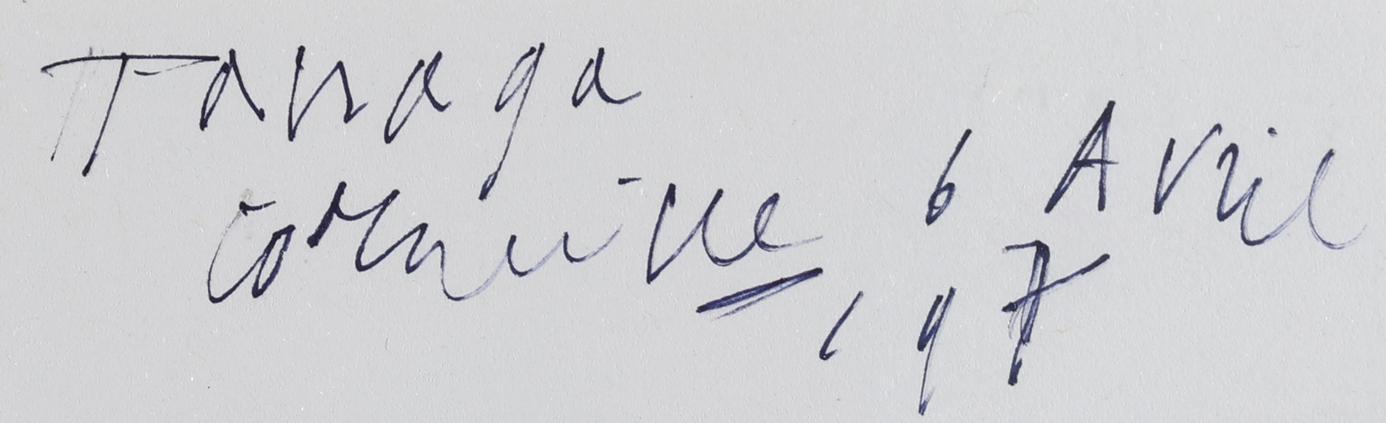 Tanaga
Corneille 6 Avril
197